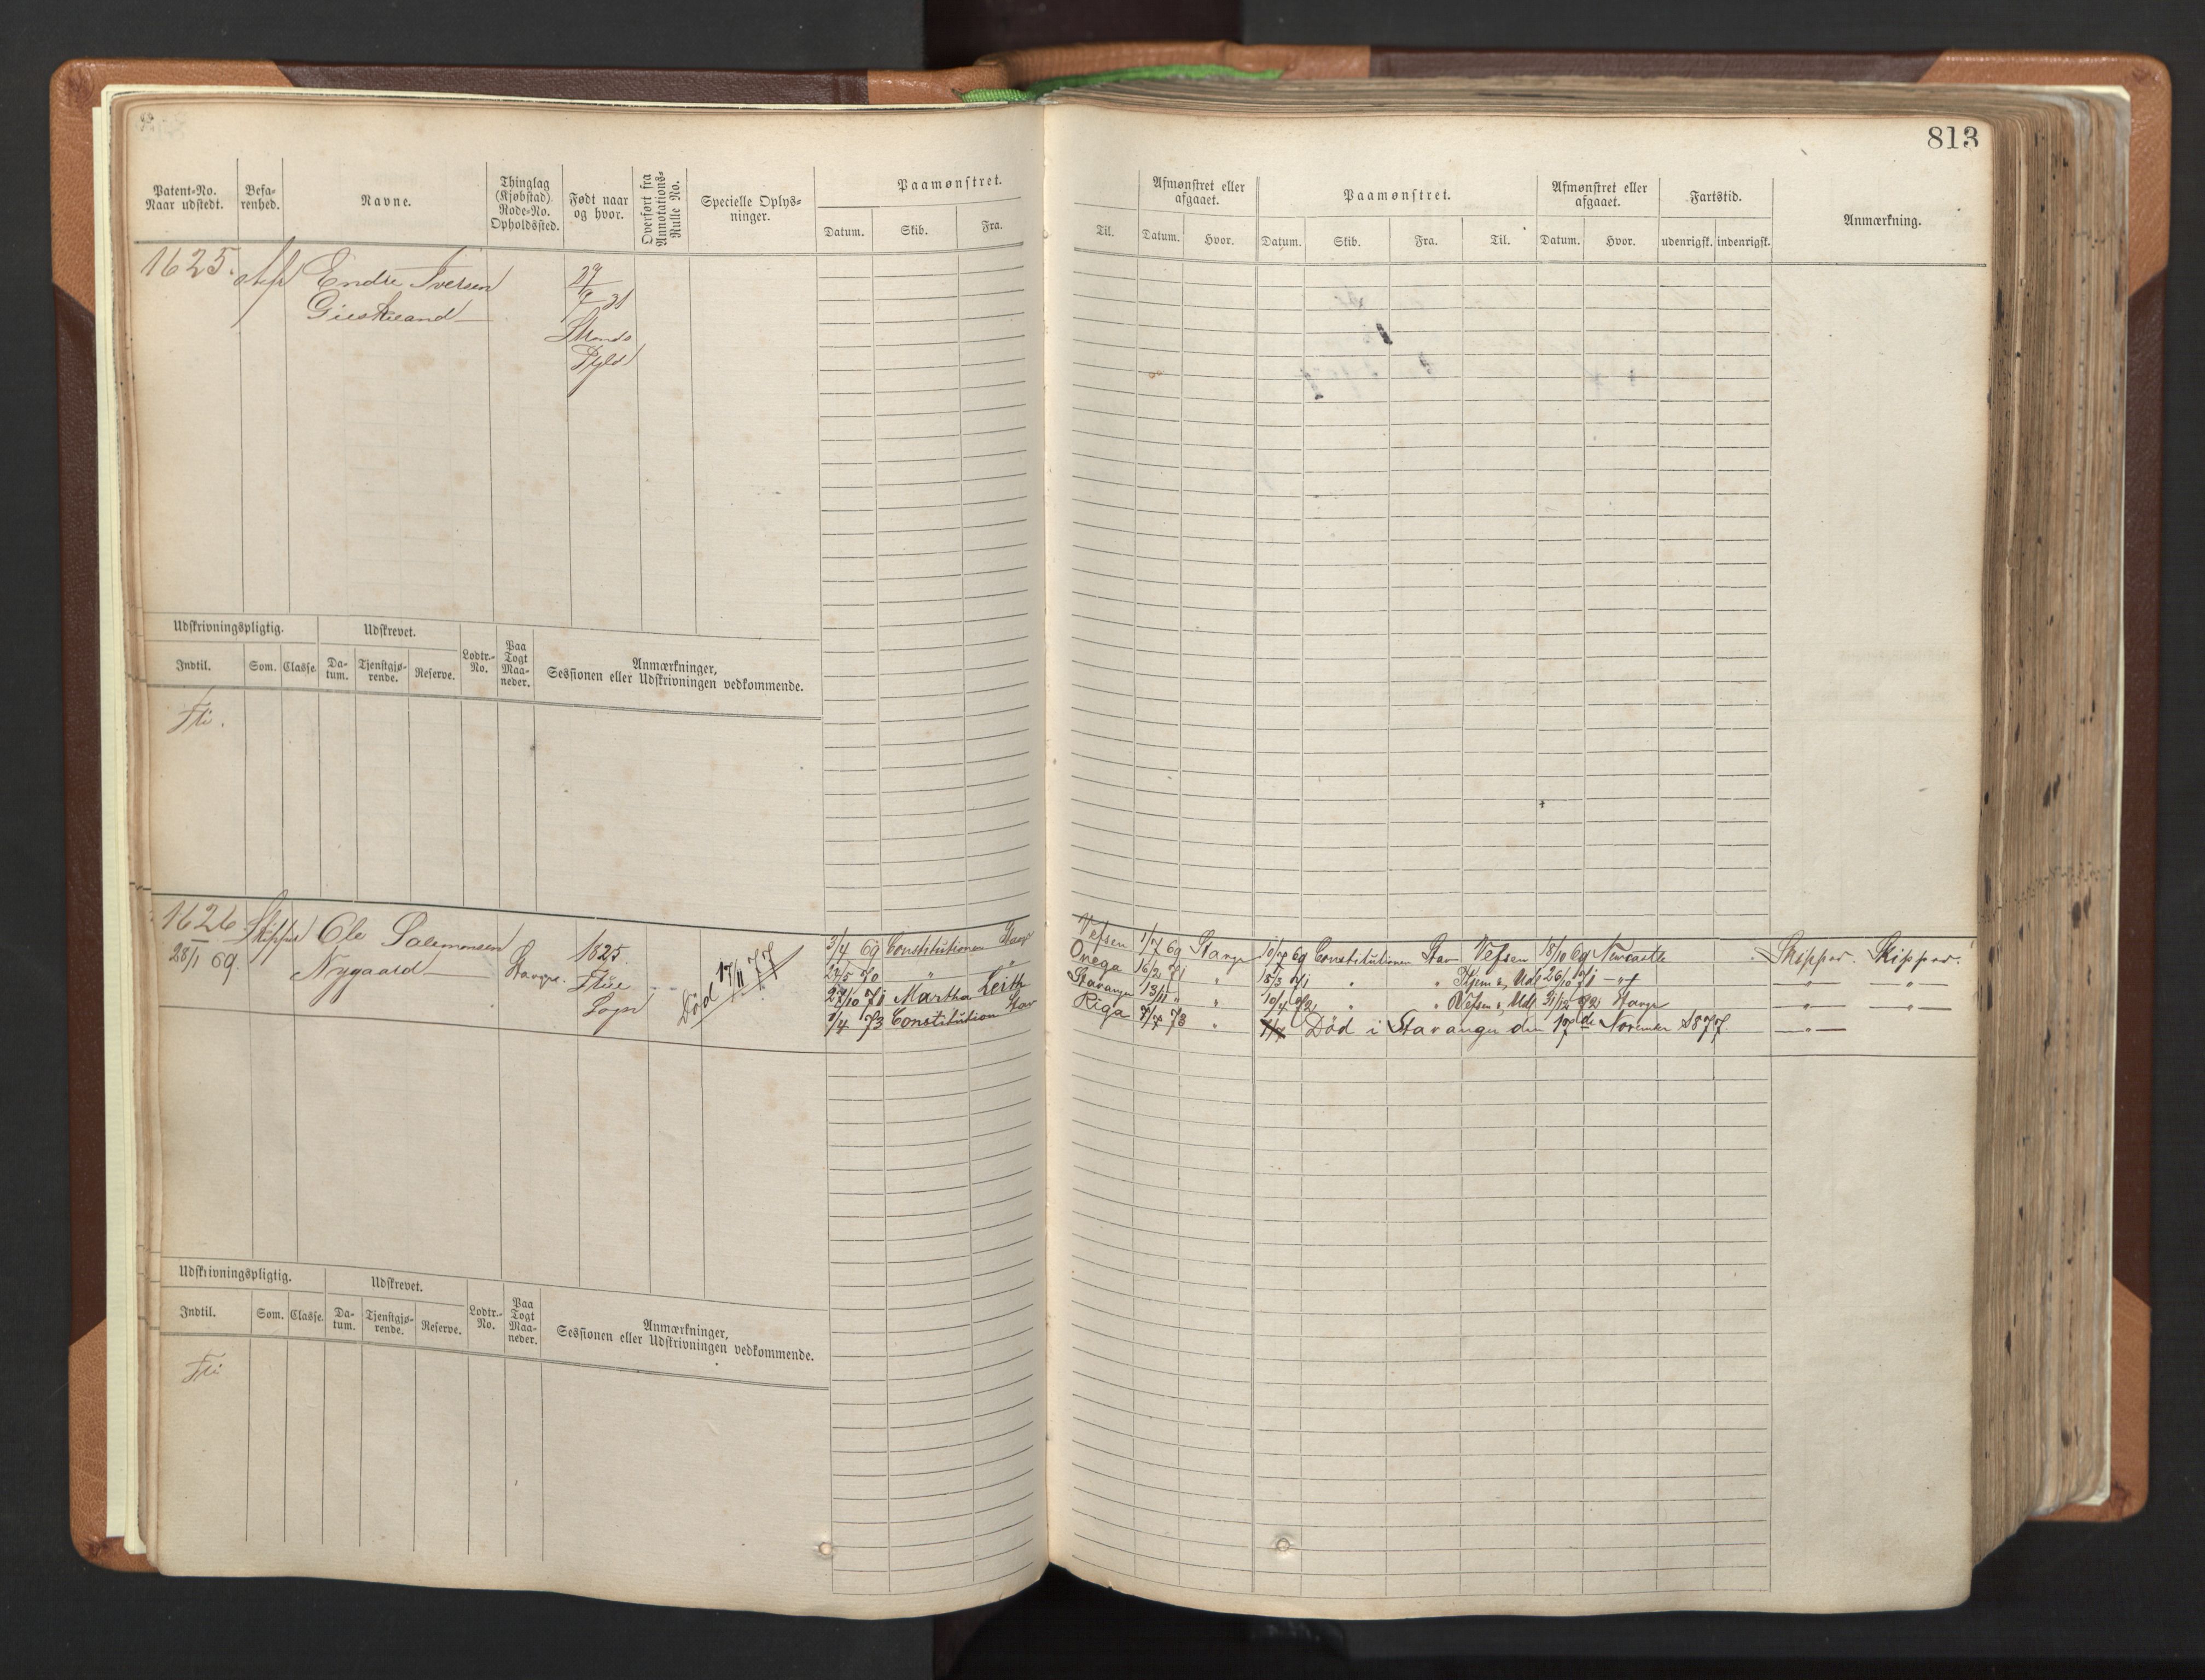 813
Patent-No. Naar udstedt.
Befarenhed.
Navne.
Thinglag (Kjøbstad). Rode-No. Opholdssted.
Født naar og hvor.
Overført fra Annotations-Rulle No.
Specielle Oplysninger.
Paamønstret.
Datum. Skib. Fra.
Til.
Afmønstret eller afgaaet.
Datum. Hvor.
Paamønstret.
Datum. Skib. Fra. Til.
Afmønstret eller afgaaet.
Datum. Hvor.
Fartstid.
udenrigsk. indenrigsk.
Anmærkning.
1625. Endre Iversen
29/9 31
Udskrivningspligtig. Udskrevet.
Indtil. Som. Classe. Datum. Tjenstgjørende. Reserve. Lodtr.-No. Paa Togt Maaneder.
Anmærkninger, Sessionen eller Udskrivningen vedkommende.
Fri.
1626 Skipper Ole Salemonsen 1825.
28/1 69. Nygaard
Sogn
Død 17/11 77
3/4 69 Constitutionen Stavgr Vefsen 1/7 69 Stavgr 10/7 69 Constitutionen Stav Vefsen 18/10 69 Newcastle Skipper. Skipper.
70 " " Onega 16/2 71 " 15/3 71 " " 26/10 71 —"— —"— —"—
27/10 71 Martha Leith Stavanger 13/11 " " 10/4 72 " " Vefsen & Udl 72 Stavgr —"— —"—
1/4 73 Constitution Stav Riga 7/7 73 " Død i Stavanger den 17de November 1877. —"—
Udskrivningspligtig. Udskrevet.
Indtil. Som. Classe. Datum. Tjenstgjørende. Reserve. Lodtr.-No. Paa Togt Maaneder.
Anmærkninger, Sessionen eller Udskrivningen vedkommende.
Fri